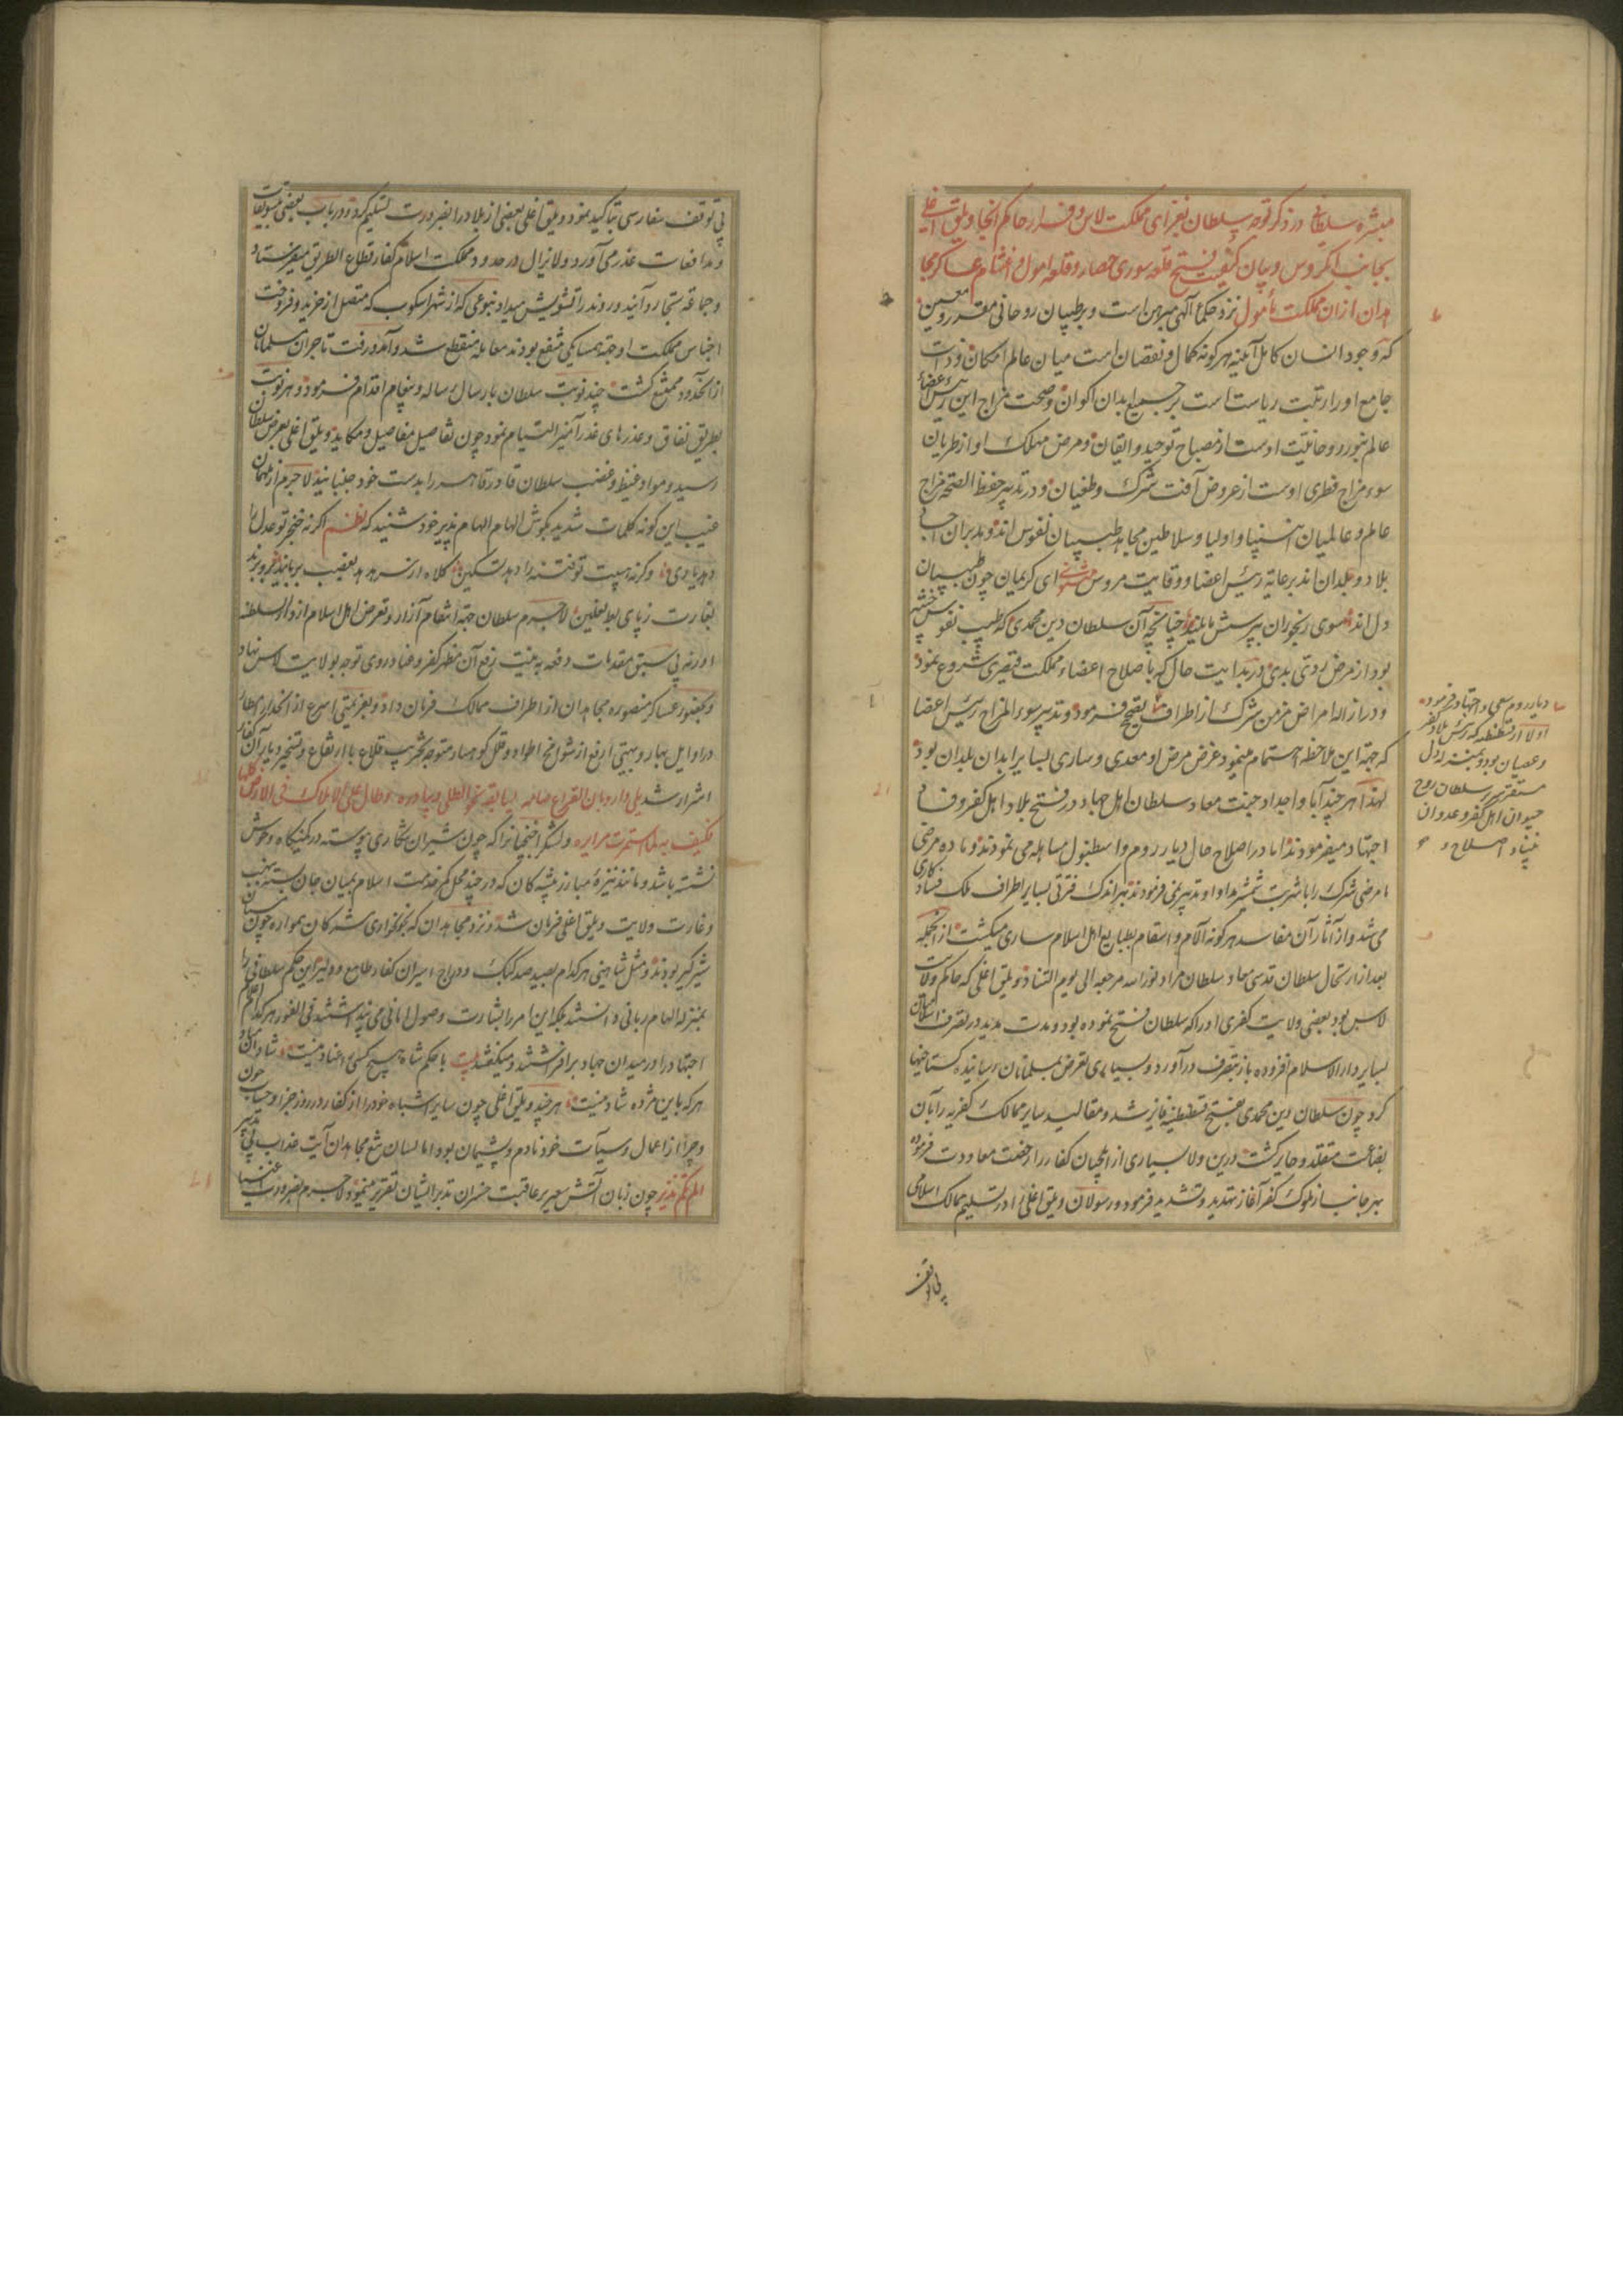 مبشره سلطانی در ذکر توجه سلطان بغزای مملکت لاس و فرار حاکم آنجا ویلق اغلی
بجانب انکروس و بیان کیفیت فتح قلعه سوری حصار و قلعه امول و اغتنام عساکر مجا
هدان ازان مملکت مأمول نزد حکماء آلهی مبرهن است و بر طبیبان روحانی مقرر و معین
که وجود انسان کامل آینه هر گونه کمال و نقصان است میان عالم امکان و ذات
جامع او را رتبت ریاست است بر جمیع ابدان اکوان و صحت مزاج این رئیس اعضاء
عالم بنور روحانیت اوست از مصباح توحید و ایقان و مرض مهلک او از طریان
سوء مزاج فطری اوست از عروض آفت شرک و طغیان و در تدبیر حفظ الصحه مزاج
عالم و عالمیان انبیا و اولیا و سلاطین مجاهد طبیبان نفوس‌اند و مدبران
بلاد و بلدان‌اند برعایه رئیس اعضا و وقایت مروس مثنوی ای کریمان چون طبیبان
دل‌اند سوی رنجوران بپرسش مایلند چنانچه آن سلطان دین محمدی که طبیب نفوس
بود از مرض ردی بدی در بدایت حال که باصلاح اعضاء مملکت قیصری شروع نمود
و در ازاله امراض مزمن شرک از اطراف فرمود و تدبیر سوء المزاج رئیس اعضا
که جهة این ملاحظه اهتمام مینمود غرض مرض او معدی و ساری بسایر ابدان بلدان بود
لهذا هر چند آبا و اجداد جنت معاد سلطان اهل جهاد در فتح بلاد اهل کفر و فساد
اجتهاد میفرمودند اما در اصلاح حال دیار روم و اسطنبول مساهله می نمودند و ماده مرضی
مرض شرک را با شربت شمشیر مداوا و تدبیر نمی فرمودند بهر اندک فترتی بسایر اطراف ملک فساد کاری
می شد و از آثار آن مفاسد هر گونه آلام و اسقام بطبایع اهل اسلام ساری میکشت از آنجمله
بعد از ارتحال سلطان قدسی معاد سلطان مراد نور الله مرجعه الی یوم التناد ویلق اغلی که حاکم ولایت
لاس بود بعضی ولایت کفری او را که سلطان فتح نموده بود و مدت مدید در تصرف
بسایر دار الاسلام افزوده باز بتصرف در آورد و بسیاری تعرض بمسلمانان رسانیده کستاخیها
کرد چون سلطان دین محمدی بفتح قسطنطینیه فایز شد و مقالید سایر ممالک کفریه را بآن
بضاعت متقلد و حایز کشت درین ولا بسیاری از ایلچیان کفار را رخصت معاودت فرموده
بهر جانب از ملوک کفر آغاز تهدید و تشدید فرمود و رسولان ویلق اغلی را در تسلیم ممالک اسلامی
بی توقف
دیار روم سعی و اجتهاد فرمود
اولا از قسطنطنیه که رئیس بلاد کفر
و عصیان بود و بمثابه دل
مستقر سریر سلطان روح
حیوان اهل کفر و عدوان
بنیاد اصلاح
بی توقف سفارسی بتأکید نمود و ویلق اغلی بعضی از بلاد را بضرورت تسلیم کرد و در باب بعضی تسویفات
و مدافعات عذر می آورد و لا یزال در حدود مملکت اسلام کفار قطاع الطریق میفرستاد
و جماعه تجار و آینده و رونده را تشویش میداد بنوعی که از شهر اسکوب که متصل از خرید و فروخت
اجناس مملکت او جهة همسایکی منتفع بودند معامله منقطع شد و آمد و رفت تاجران مسلمان
از آنحدود ممتنع کشت چند نوبت سلطان بارسال رساله و پیغام اقدام فرمود و هر نوبت
بطریق نفاق و عذرهای غدرآمیز التیام نمود چون تفاصیل مفاصیل و مکاید ویلق اغلی بعرض سلطان
رسید و مواد غیظ و غضب سلطان قادر قاهر را بدست خود جنبانید لا جرم از ملهمان
غیب این کونه کلمات شدید بکوش الهام الهام پذیر خود شنید که نظم اکر نه خنجر تو عدل را
دهد یاری وکرنه هیبت تو فتنه را دهد تسکین کلاه از سر هدهد بغصب بربایند
بغارت ز پای بط نعلین لا جرم سلطان جهة انتقام آزار و تعرض اهل اسلام از دار السلطنه
ادرنه بی سبق مقدمات دفعه به نیت رفع آن مظهر کفر و عناد روی توجه بولایت لاس نهاد
و بحضور عساکر منصوره مجاهدان از اطراف ممالک فرمان داد و بعزیمتی اسرع از انحدار امطار
در اوایل بهار و بهیبتی ارفع از شوامخ اطواد و قلل کوهسار متوجه تخریب قلاع با ارتفاع و تسخیر دیار آن کفار
اشرار شد
فکیف به و لشکر اقنجیانرا که چون شیران شکاری پیوسته در کمینکاه وحوش
نشسته باشد و مانند نیزه مبارز پیشه کان که در چند محل کمر خدمت اسلام بمیان جان بسته بنهب
و غارت ولایت ویلق اغلی فرمان شد و نزد مجاهدان که بخونخواری مشرکان همواره چون
شیرکیر بودند و مثل شاهینی هر کدام بصید صد کبک و دراج اسیران کفار طامع و دلیر این حکم سلطانی را
بمنزله الهام ربانی دانستند بلکه این امر را بشارت وصول امانی می پنداشتند فی الفور هر کدام علم
اجتهاد را در میدان جهاد برافراشتند و میکفتند بیت با حکم شاه هیچ کسی را عناد نیست
هر که باین مژده شاد نیست هر چند ویلق اغلی چون سایر اشباه خود را از کفار در روز جزا و حساب
و جزا از اعمال و سیآت خود نادم و پشیمان بود اما لسان تیغ مجاهدان آیت عذاب
الم یأتکم نذیر چون زبان آتش سعیر بر عاقبت خسران تدبیر ایشان تقریر مینمود و لا جرم بضرورت